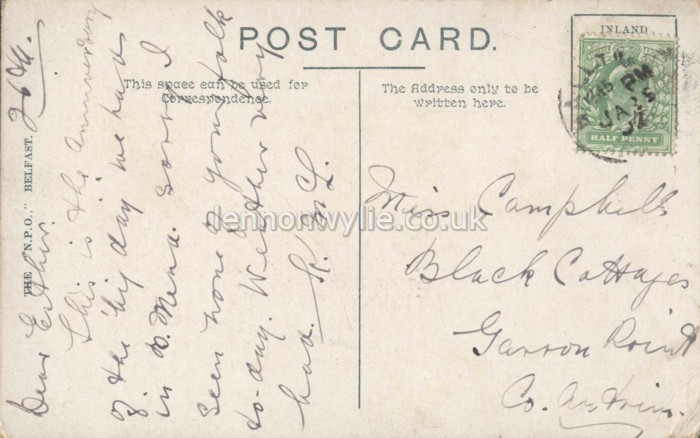 POST CARD.
This space can be used for
Correspondence.
The Address only to be
written here.
INLAND
HALF PENNY
12.15 PM
JA
THE "N.P.O." BELFAST.
Dear Esther.
This is the anniversary
of the big day we had
in B. Mena. Sorry I
seen none of your folk
to-day. Weather very
bad.
Miss Campbell
Black Cottages
Garron Point
Co. Antrim.
dennonwylie.co.uk